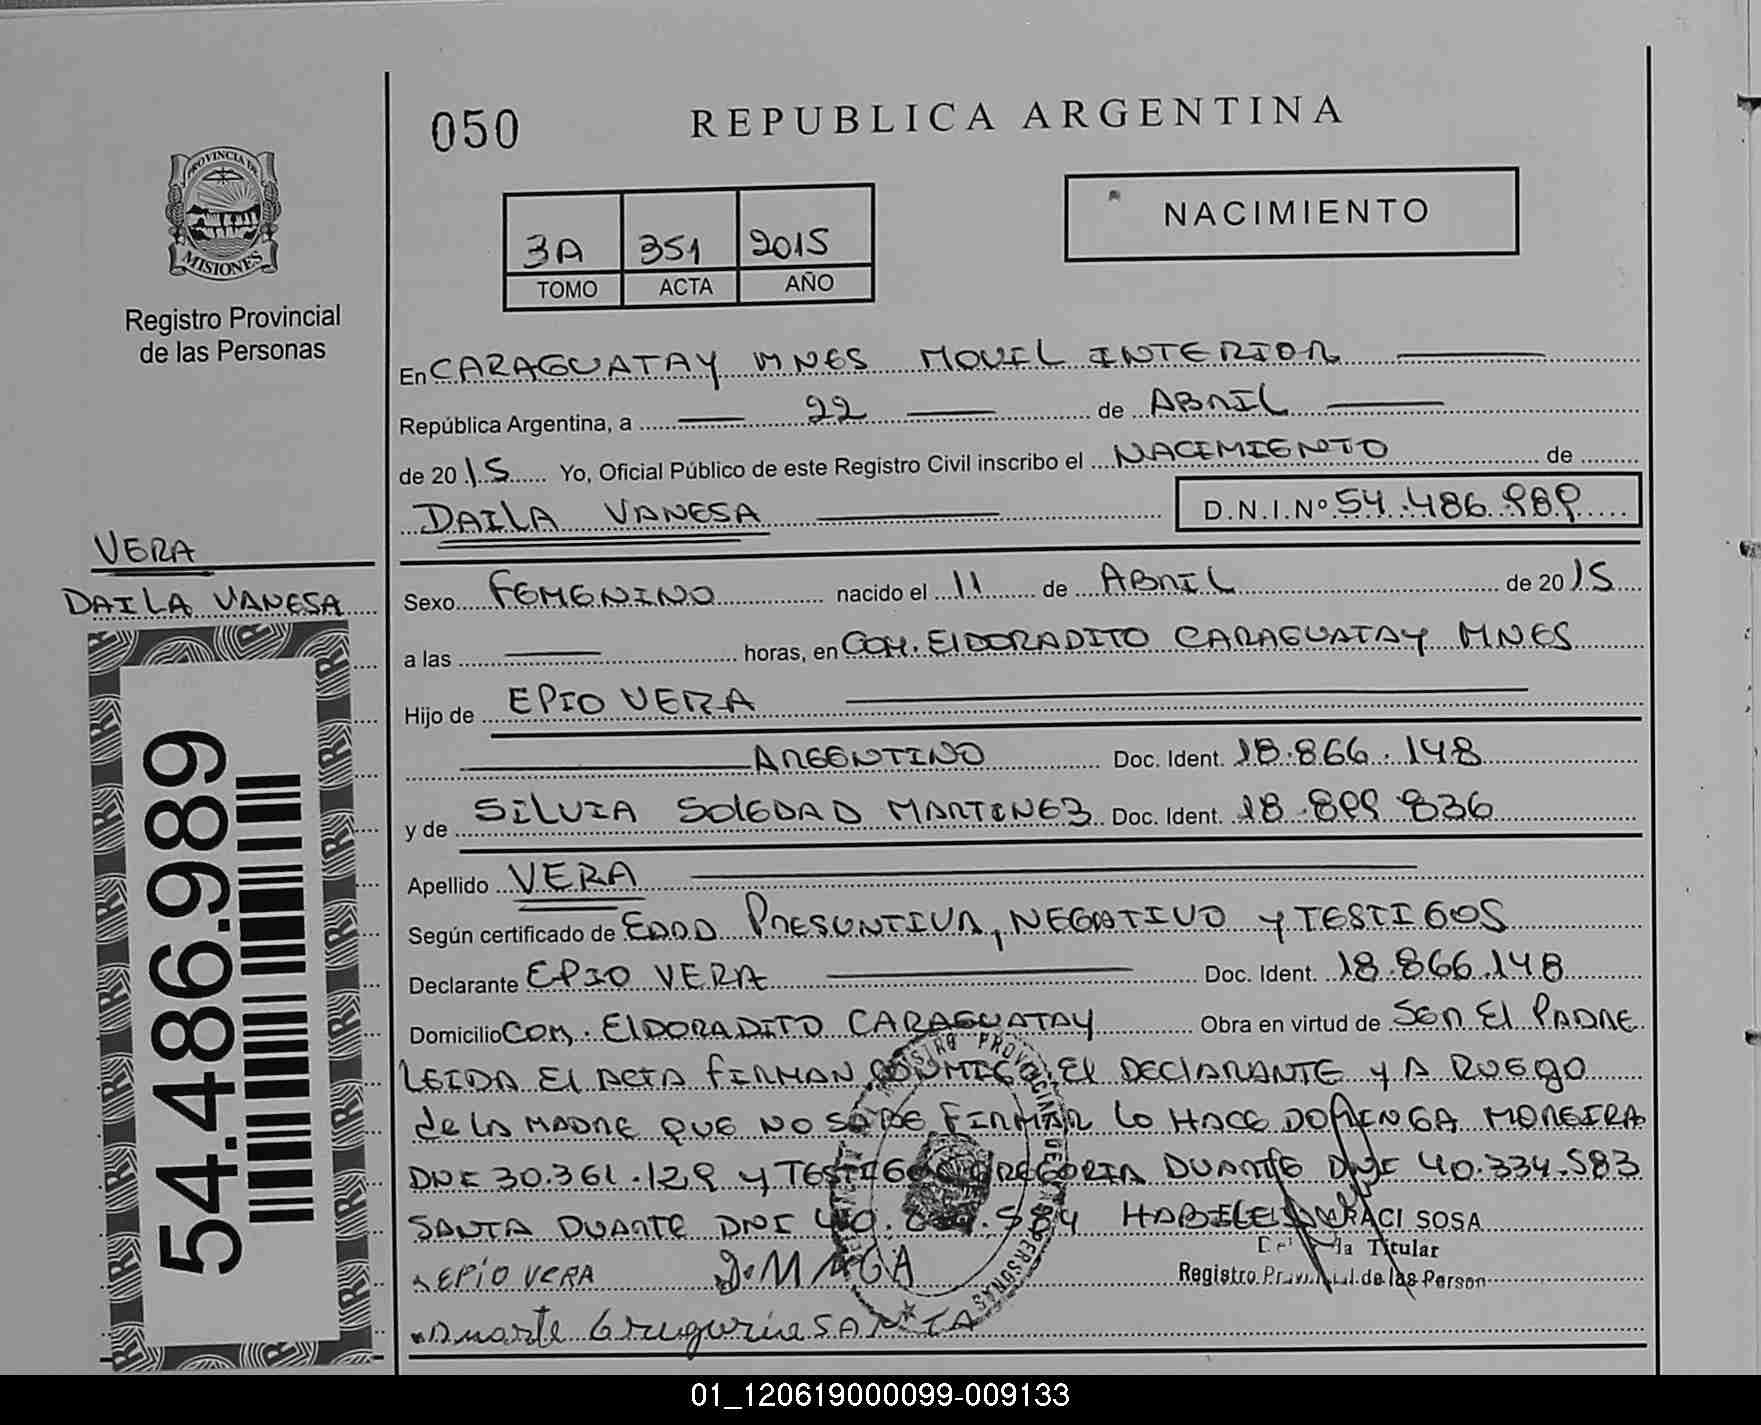 050
REPUBLICA ARGENTINA
PROVINCIA DE
MISIONES
Registro Provincial
de las Personas
3A 351 2015
TOMO ACTA AÑO
NACIMIENTO
En CARAGUATAY MNES MOVIL INTERIOR
República Argentina, a 22 de ABRIL
de 2015 Yo, Oficial Público de este Registro Civil inscribo el NACIMIENTO de
DAILA VANESA D.N.I.Nº 54.486.989
VERA
DAILA VANESA
Sexo FEMENINO nacido el 11 de ABRIL de 2015
a las horas, en COM. ELDORADITO CARAGUATAY MNES
Hijo de EPIO VERA
ARGENTINO Doc. Ident. 18.866.148
y de SILVIA SOLEDAD MARTINEZ Doc. Ident. 18.899.836
Apellido VERA
Según certificado de EDAD PRESUNTIVA, NEGATIVO Y TESTIGOS
Declarante EPIO VERA Doc. Ident. 18.866.148
Domicilio COM. ELDORADITO CARAGUATAY Obra en virtud de SER EL PADRE
LEIDA EL ACTA FIRMAN CONMIGO EL DECLARANTE Y A RUEGO
de LA MADRE QUE NO SABE FIRMAR LO HACE DOMINGA MOREIRA
DNI 30.361.129 Y TESTIGOS GREGORIA DUARTE DNI 40.334.583
SANTA DUARTE DNI HABILE ARACI SOSA
la Titular
EPIO VERA D.MAGA Registro Provincial de las Person
Duarte Greguria SANTA
54.486.989
01_120619000099-009133